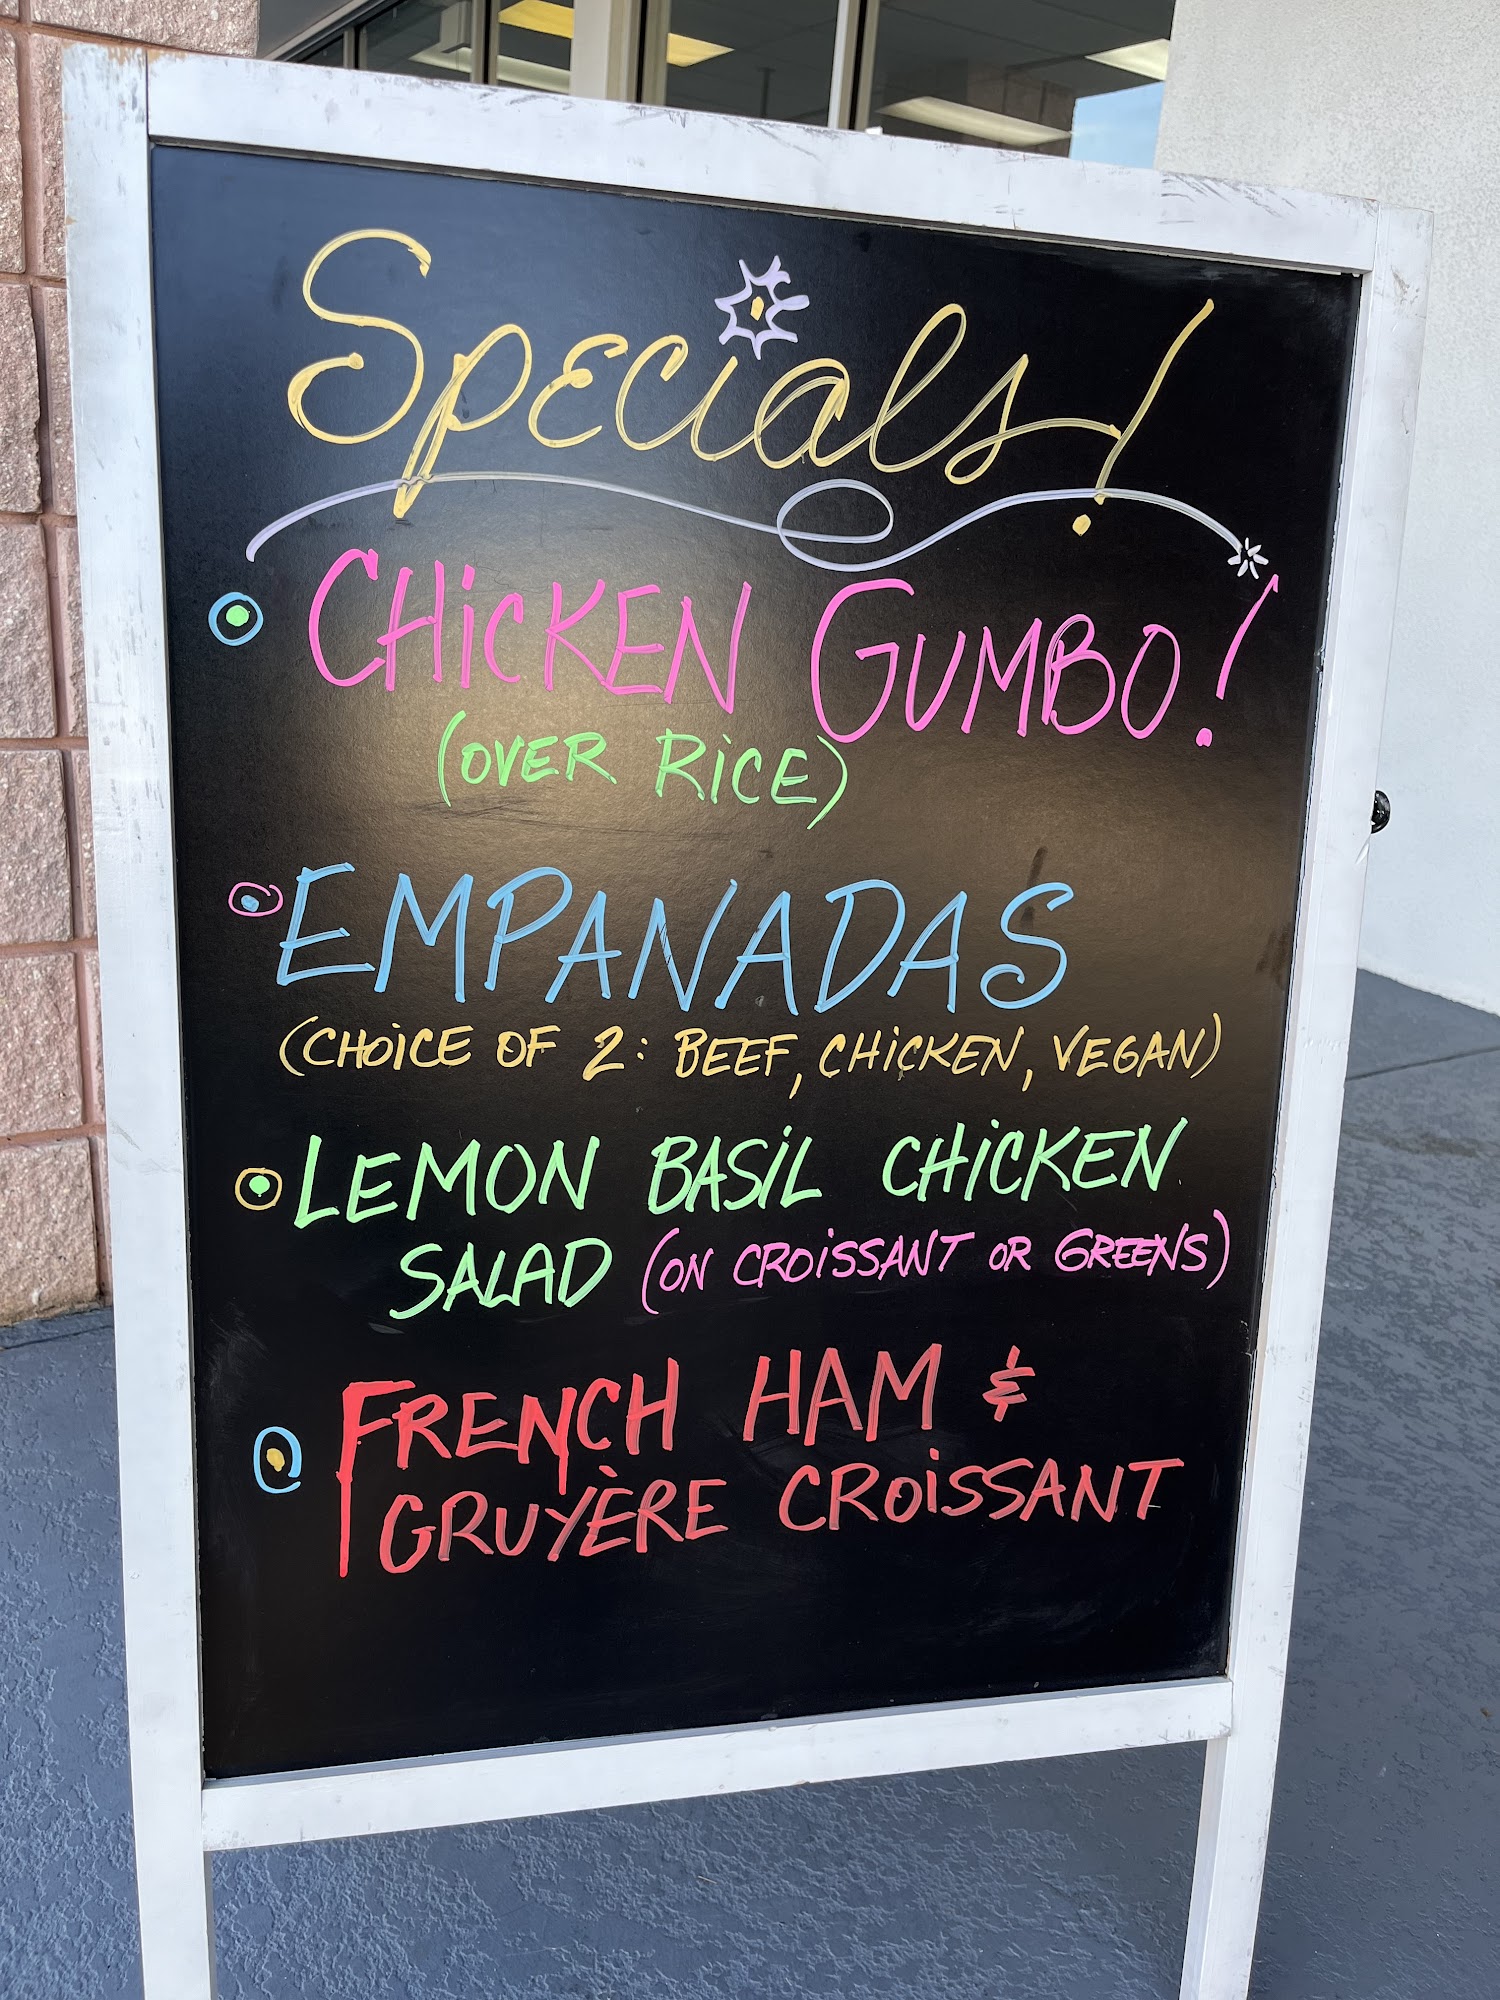 Specials!
CHiCKEN GUMBO!
(OVER RiCE)
EMPANADAS
(CHOiCE OF 2: BEEF, CHiCKEN, VEGAN)
LEMON BASiL CHiCKEN
SALAD (ON CROiSSANT OR GREENS)
FRENCH HAM &
GRUYÈRE CROiSSANT